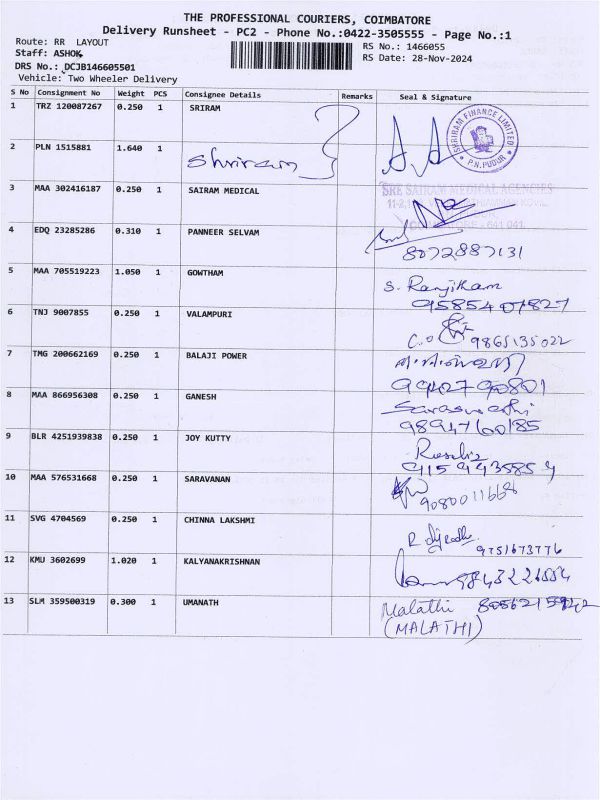 THE PROFESSIONAL COURIERS, COIMBATORE
Delivery Runsheet - PC2 - Phone No.:0422-3505555 - Page No.:1
Route: RR LAYOUT
Staff: ASHOK
DRS No.: DCJB146605501
Vehicle: Two Wheeler Delivery
RS No.: 1466055
RS Date: 28-Nov-2024
S No Consignment No Weight PCS Consignee Details Remarks Seal & Signature
1 TRZ 120087267 0.250 1 SRIRAM
SHRIRAM FINANCE LIMITED
* P.N.PUDUR *
2 PLN 1515881 1.640 1 Shriram
3 MAA 302416187 0.250 1 SAIRAM MEDICAL
SRE SAIRAM MEDICAL AGENCIES
641 041
4 EDQ 23285286 0.310 1 PANNEER SELVAM
8072887131
5 MAA 705519223 1.050 1 GOWTHAM S. Ranjitham
9585407827
6 TNJ 9007855 0.250 1 VALAMPURI
9865135022
7 TMG 200662169 0.250 1 BALAJI POWER
9942790801
8 MAA 866956308 0.250 1 GANESH Saraswathi
9894760185
9 BLR 4251939838 0.250 1 JOY KUTTY
10 MAA 576531668 0.250 1 SARAVANAN
9080011668
11 SVG 4704569 0.250 1 CHINNA LAKSHMI
9751673776
12 KMU 3602699 1.020 1 KALYANAKRISHNAN
13 SLM 359500319 0.300 1 UMANATH Malathi
(MALATHI)